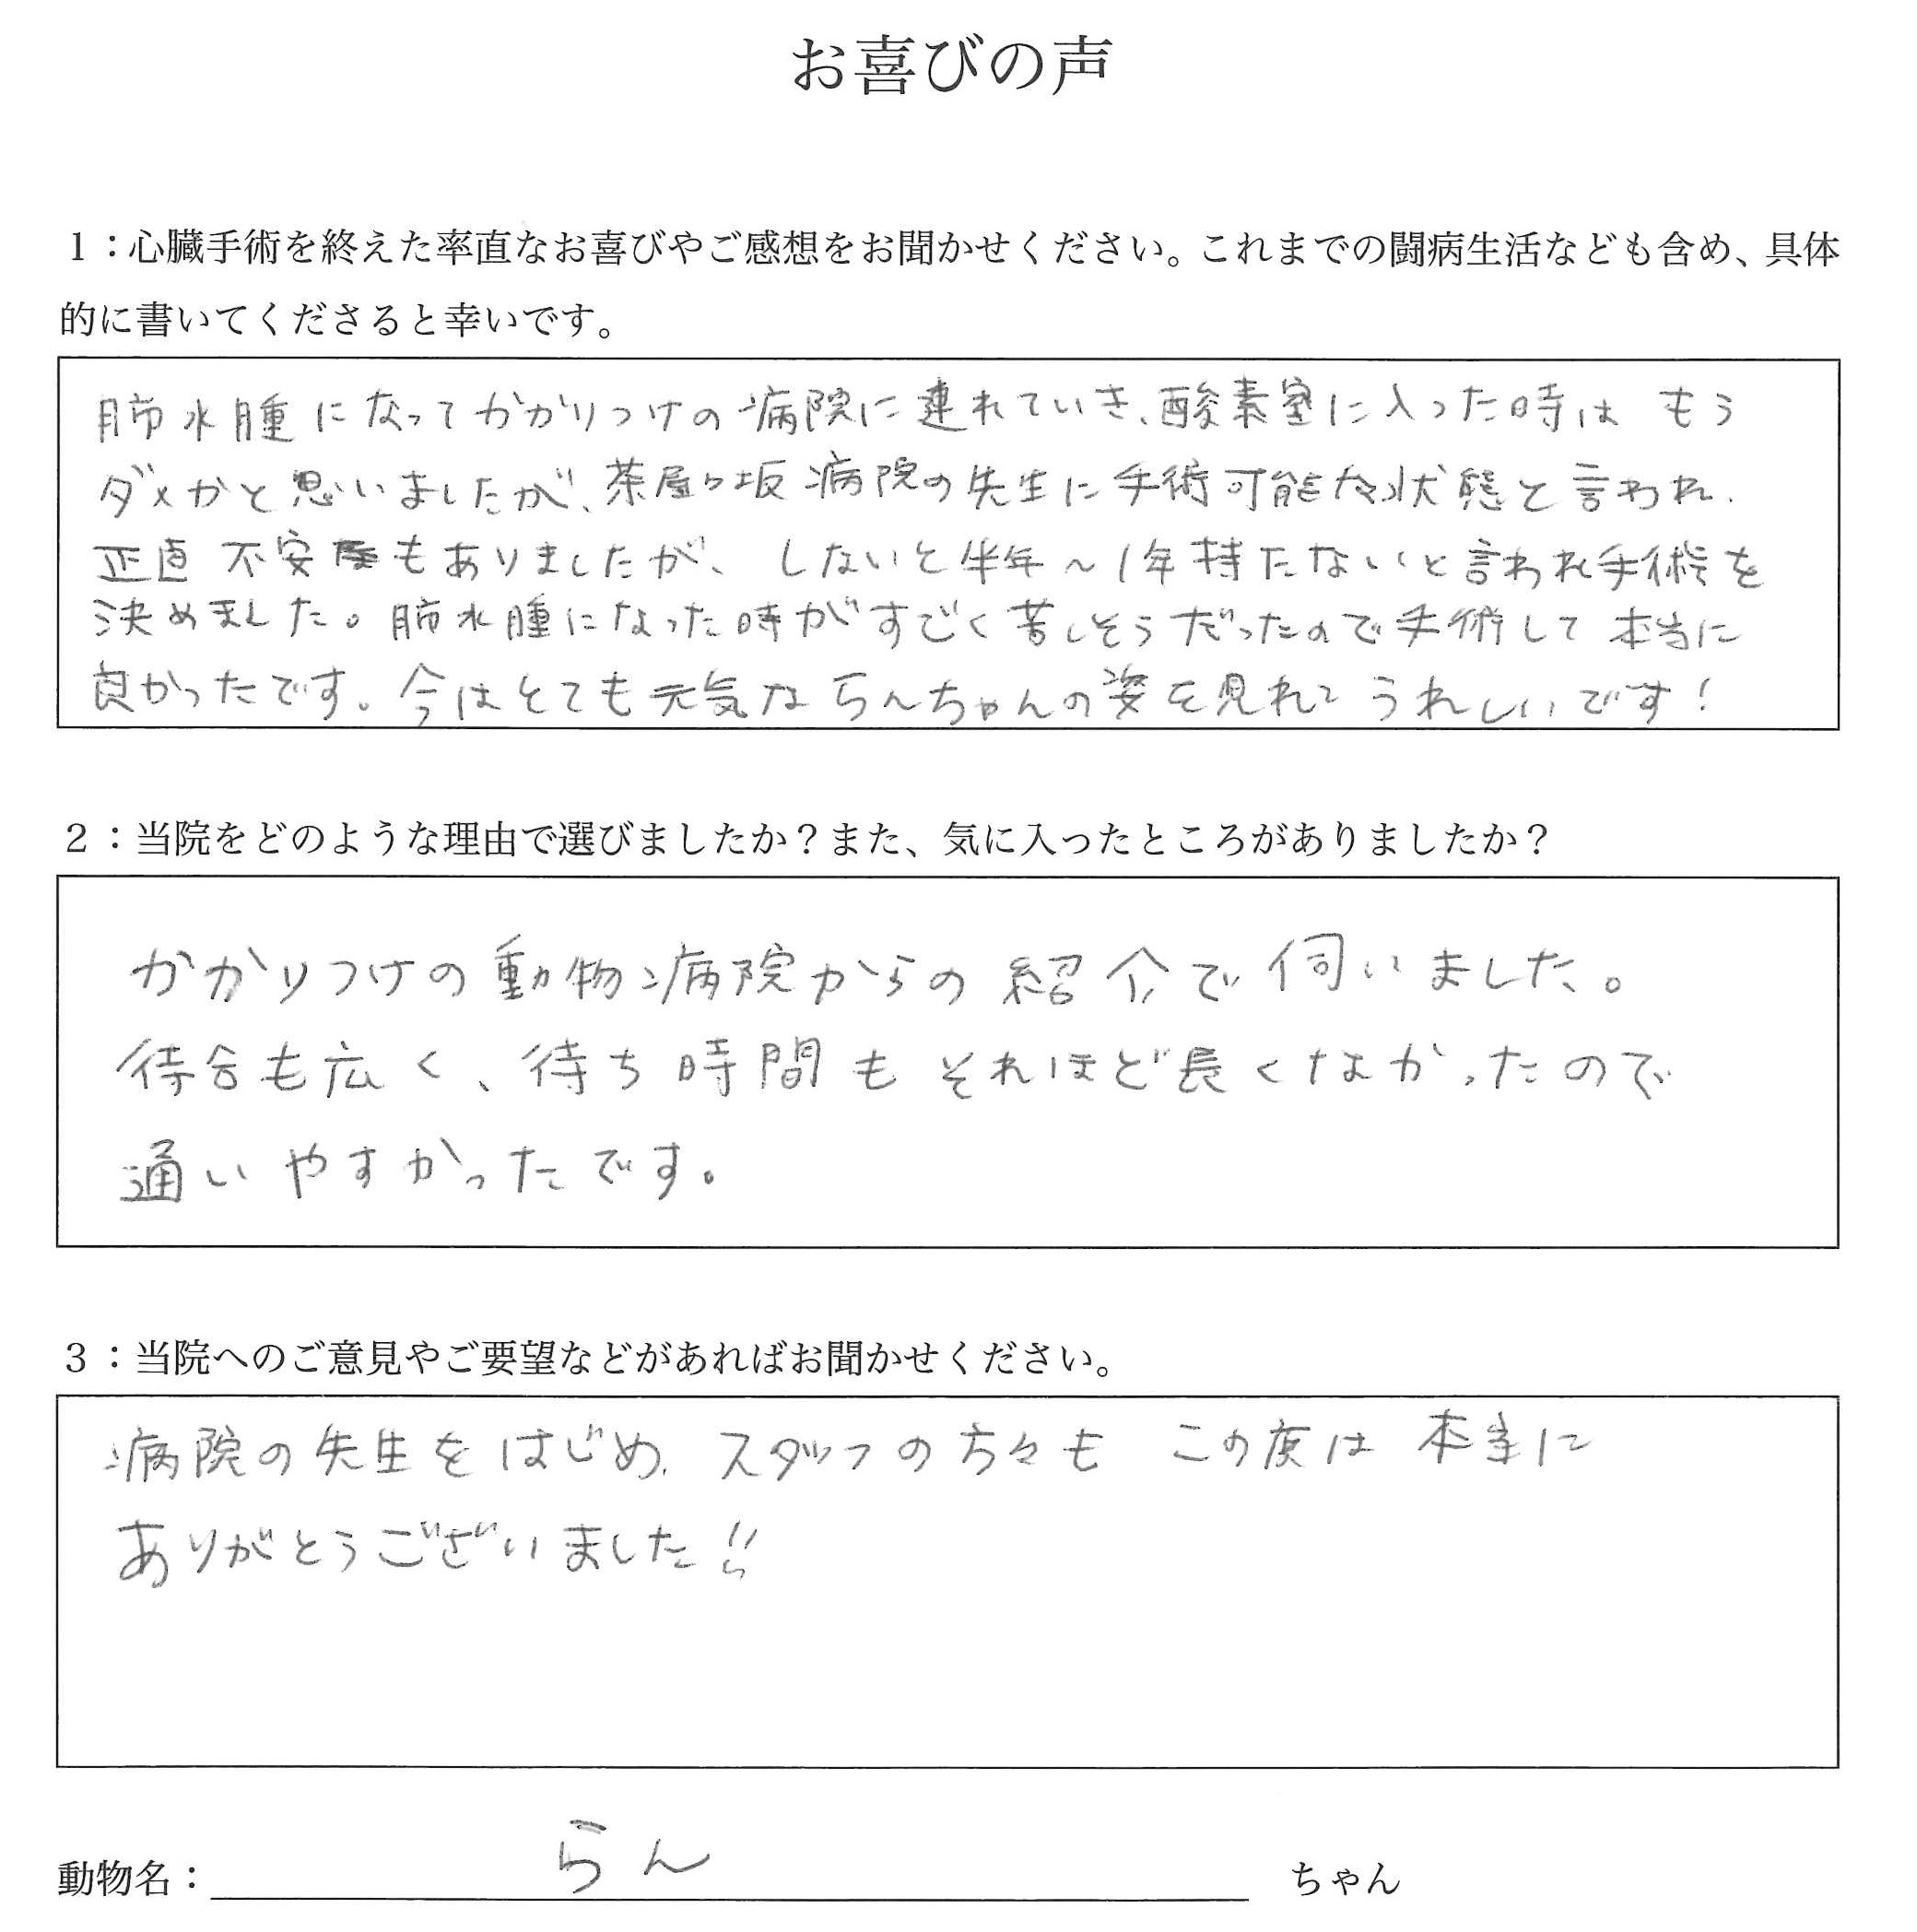 お喜びの声
１：心臓手術を終えた率直なお喜びやご感想をお聞かせください。これまでの闘病生活なども含め、具体
的に書いてくださると幸いです。
肺水腫になってかかりつけの病院に連れていき、酸素室に入った時は もう
ダメかと思いましたが、茶屋ヶ坂病院の先生に手術可能な状態と言われ、
正直 不安もありましたが、しないと半年～1年持たないと言われ手術を
決めました。肺水腫になった時がすごく苦しそうだったので手術して 本当に
良かったです。今はとても元気ならんちゃんの姿を見れてうれしいです！
２：当院をどのような理由で選びましたか？また、気に入ったところがありましたか？
かかりつけの動物病院からの紹介で伺いました。
待合も広く、待ち時間もそれほど長くなかったので
通いやすかったです。
３：当院へのご意見やご要望などがあればお聞かせください。
病院の先生をはじめ、スタッフの方々も この度は 本当に
ありがとうございました!!
動物名： らん ちゃん